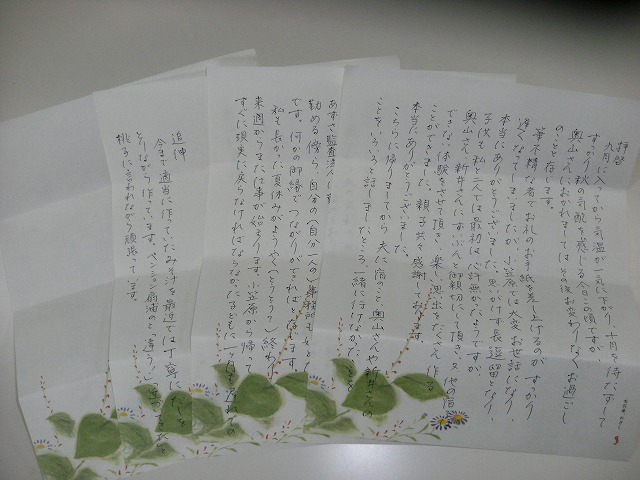 拝啓
九月に入ってから気温が一気に下がり、十月を待たずして
すっかり秋の気配を感じる今日この頃ですが、
奥山さんにおかれましてはその後お変わりなくお過ごし
のことと存じます。
筆不精な者でお礼のお手紙を差し上げるのがすっかり
遅くなってしまいましたが、小笠原では大変お世話になり、
本当にありがとうございました。思いがけず長逗留となり、
子供も私と二人では最初は心許無かったようですが、
奥山さん、新井さんにずいぶんと御親切にして頂き、又、他の宿
できない体験をさせて頂き、楽しい思い出をたくさん作る
ことができました。親子共々感謝しております。
本当にありがとうございました。
こちらに帰りましてから、夫に宿のこと、奥山さんや新井さんの
ことをいろいろと話しましたところ、一緒に行けなかった
あずさ監査法人
勤める傍ら、自分の(自分一人の)事務所も
です。何かの御縁でつながりができればと存じます。
私も長かった夏休みがようやく(とうとう?)終わり、
来週からまた仕事が始まります。小笠原から帰って
すぐに現実に戻らなければならなかった子どもに一ヶ月も遅れての
追伸
今まで適当に作っていたみそ汁を最近では丁寧にだしを
とりながら作っています。ペンション
桃子に言われながら頑張ってます。